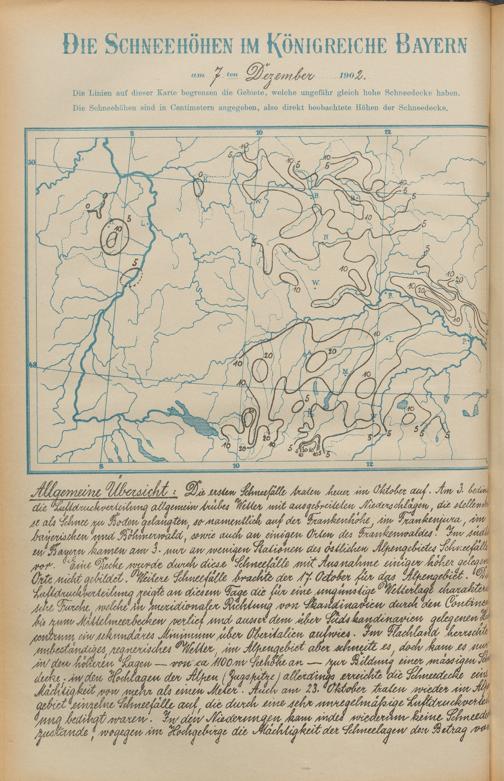 DIE SCHNEEHÖHEN IM KÖNIGREICHE BAYERN
am 7 ten Dezember 1902.
Die Linien auf dieser Karte begrenzen die Gebiete, welche ungefähr gleich hohe Schneedecke haben.
Die Schneehöhen sind in Centimetern angegeben, also direkt beobachtete Höhen der Schneedecke.
Allgemeine Übersicht: Die ersten Schneefälle traten heuer im Oktober auf. Am 3. bedin
die Luftdruckverteilung allgemein trübes Wetter mit ausgebreiteten Niederschlägen, die stellenw
se als Schnee zu Boden gelangten, so namentlich auf der Frankenhöhe, im Frankenjura, im
bayerischen und Böhmerwald, sowie auch an einigen Orten des Frankenwaldes. Im südl
en Bayern kamen am 3. nur an wenigen Stationen des östlichen Alpengebietes Schneefälle
vor. Eine Decke wurde durch diese Schneefälle mit Ausnahme einiger höher gelegen
Orte nicht gebildet. Weitere Schneefälle brachte der 17. October für das Alpengebiet.
Luftdruckverteilung zeigt an diesem Tage die für eine ungünstige Wetterlage charakteris
sche Furche, welche in meridionaler Richtung von Skandinavien durch den Continen
bis zum Mittelmeerbecken verlief und ausser dem über Südskandinavien gelegenen
centrum ein sekundäres Minimum über Oberitalien aufwies. Im Flachland herrschte
unbeständiges, regnerisches Wetter, im Alpengebiet aber schneite es, doch kam es nur
in den höheren Lagen — von ca 1100 m Seehöhe an — zur Bildung einer mässigen Sch
decke. in den Hochlagen der Alpen (Zugspitze) allerdings erreichte die Schneedecke eine
Mächtigkeit von mehr als einem Meter. Auch am 23. Oktober traten wieder im Alp
gebiet einzelne Schneefälle auf, die durch eine sehr unregelmäßige Luftdruckvertei
ung bedingt waren. In den Niederungen kam indes wiederum keine Schneede
zustande, wogegen im Hochgebirge die Mächtigkeit der Schneelagen den Betrag von